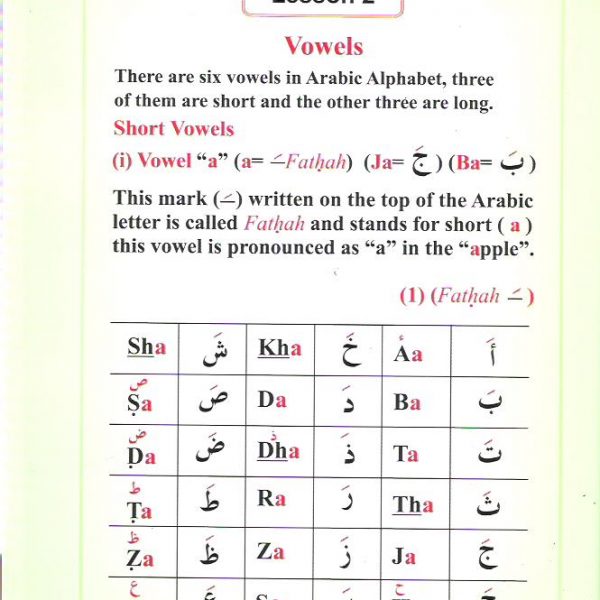 Lesson 2
Vowels
There are six vowels in Arabic Alphabet, three
of them are short and the other three are long.
Short Vowels
(i) Vowel “a” (a= ـَ Fatḥah) (Ja= جَ ) (Ba= بَ )
This mark (ـَ) written on the top of the Arabic
letter is called Fatḥah and stands for short ( a )
this vowel is pronounced as “a” in the “apple”.
(1) (Fatḥah ـَ )
Sha شَ Kha خَ Åa أَ
ص
Ṣa صَ Da دَ Ba بَ
ض
Ḍa ضَ Dha ذَ Ta تَ
ط
Ṭa طَ Ra رَ Tha ثَ
ظ
Ẓa ظَ Za زَ Ja جَ
ع ح